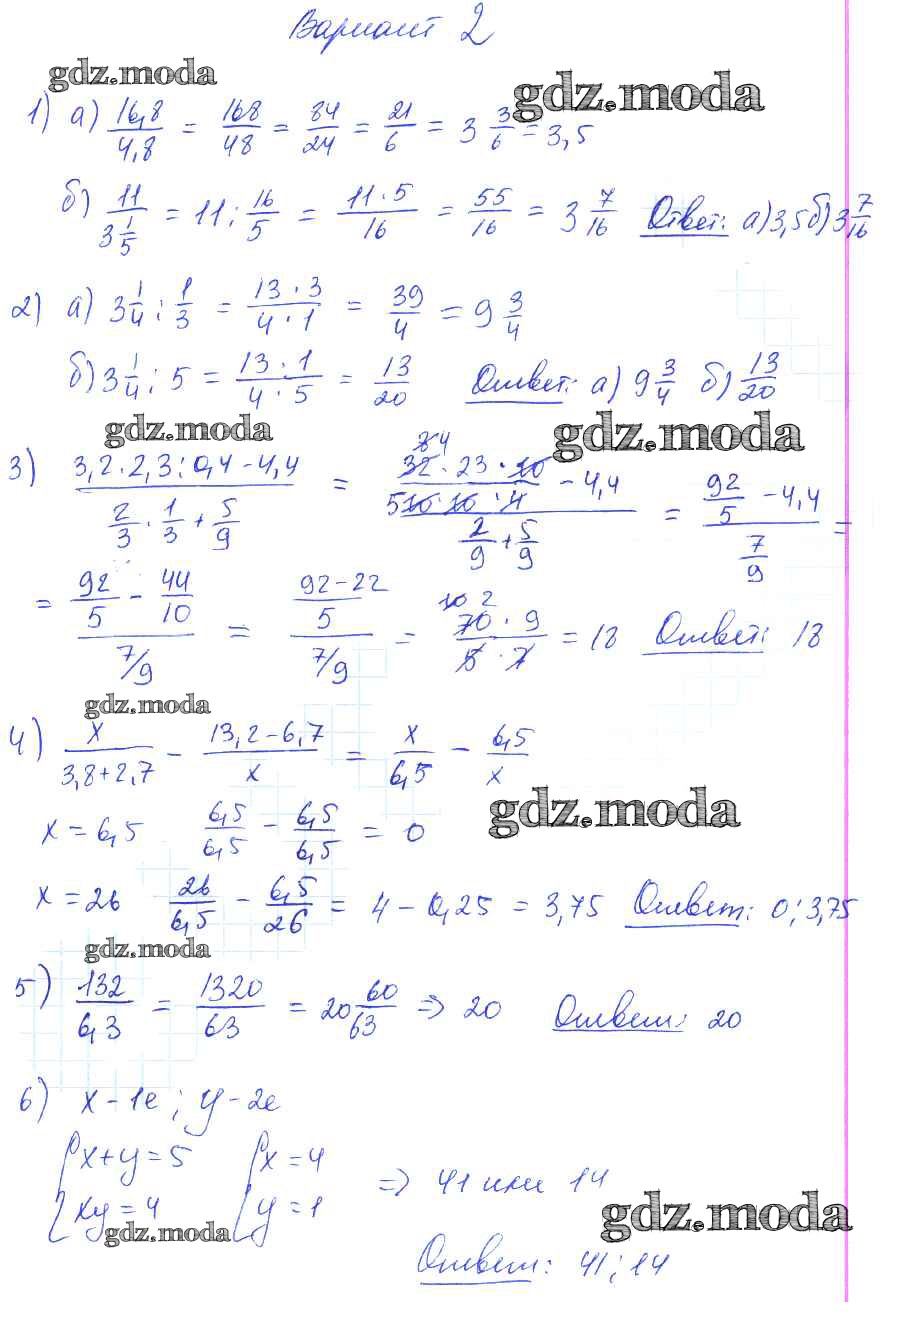 Вариант 2
gdz.moda gdz.moda
1) а) 16,8/4,8 = 168/48 = 84/24 = 21/6 = 3 3/6 = 3,5
б) 11/(3 1/5) = 11 : 16/5 = (11·5)/16 = 55/16 = 3 7/16 Ответ: а) 3,5 б) 3 7/16
2) а) 3 1/4 : 1/3 = (13·3)/(4·1) = 39/4 = 9 3/4
б) 3 1/4 : 5 = (13·1)/(4·5) = 13/20 Ответ: а) 9 3/4 б) 13/20
gdz.moda gdz.moda
3) (3,2·2,3:0,4-4,4)/(2/3·1/3+5/9) = ((32·23·10)/(10·10·4) - 4,4)/(2/9+5/9) = (92/5 - 4,4)/(7/9) =
= (92/5 - 44/10)/(7/9) = ((92-22)/5)/(7/9) = (70·9)/(5·7) = 18 Ответ: 18
gdz.moda
4) x/(3,8+2,7) - (13,2-6,7)/x = x/6,5 - 6,5/x
gdz.moda
x = 6,5 6,5/6,5 - 6,5/6,5 = 0
x = 26 26/6,5 - 6,5/26 = 4 - 0,25 = 3,75 Ответ: 0; 3,75
gdz.moda
5) 132/6,3 = 1320/63 = 20 60/63 => 20 Ответ: 20
6) x - 1е; y - 2е
{x+y=5 {x=4
=> 41 или 14
{xy=4 {y=1
gdz.moda gdz.moda
Ответ: 41; 14